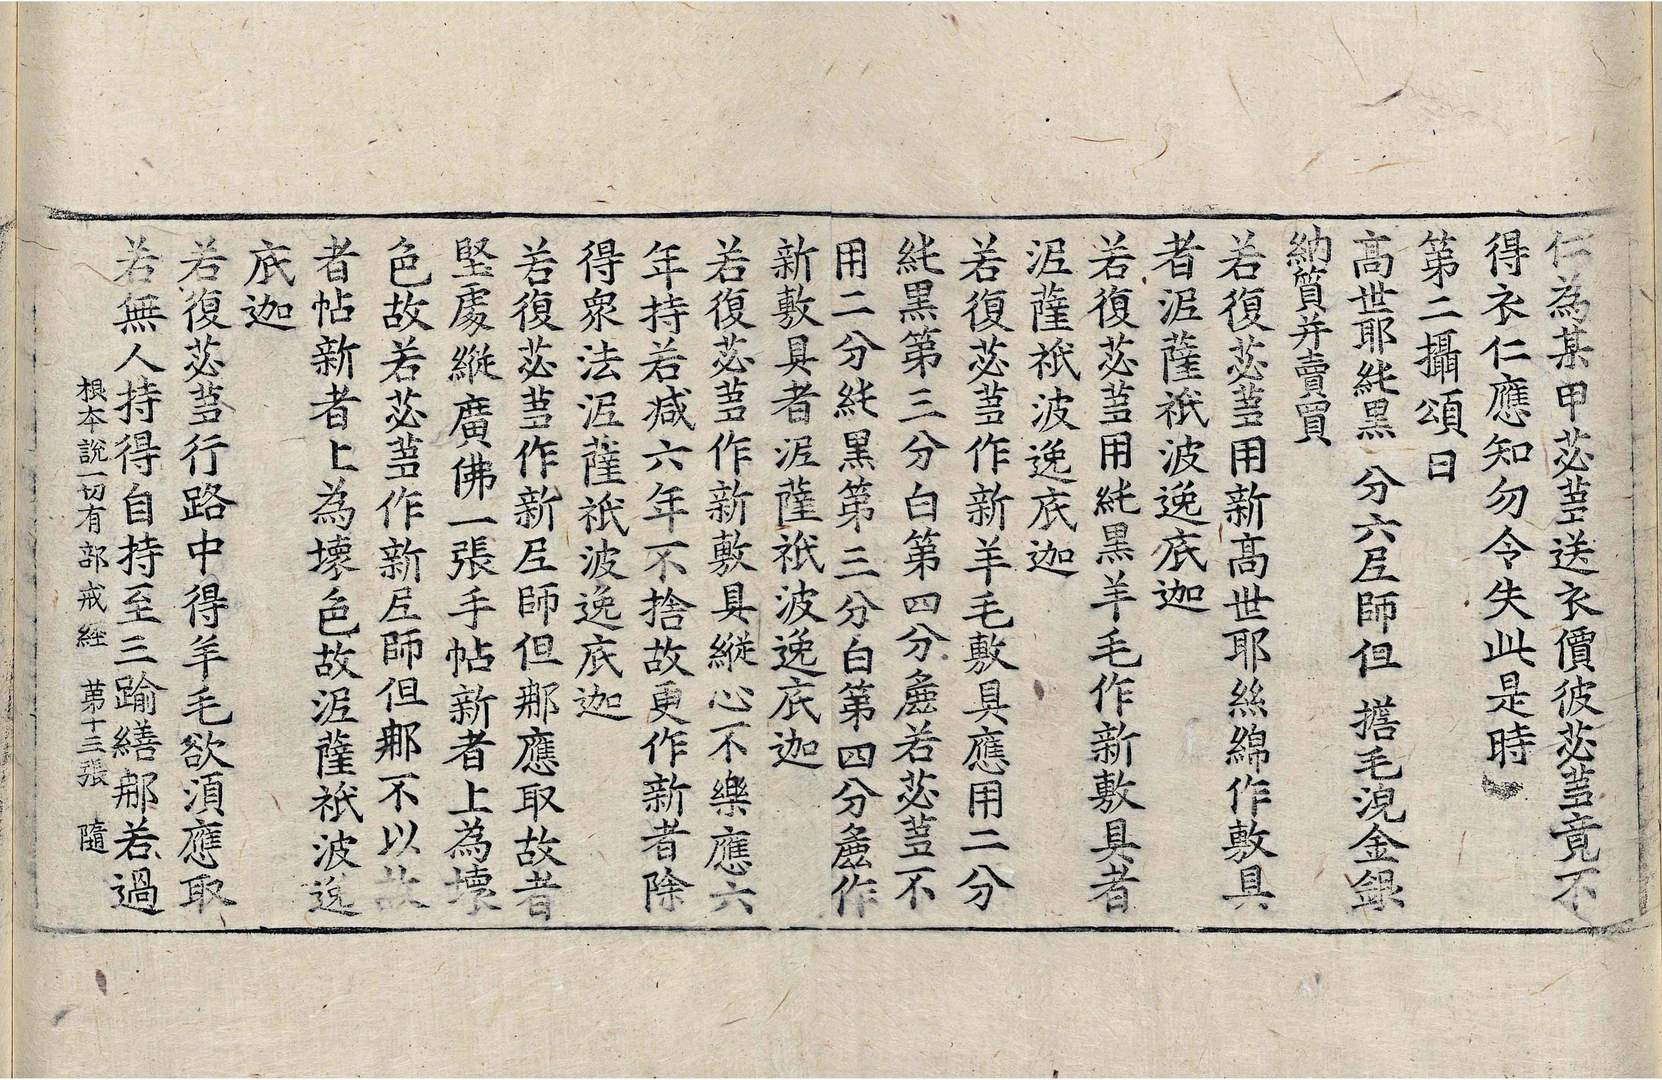 仁為某甲苾蒭送衣價彼苾蒭竟不
得衣仁應知勿令失此是時
第二攝頌曰
高世耶純黑　分六尼師但　擔毛浣金銀
納質并賣買
若復苾蒭用新高世耶絲綿作敷具
者泥薩祇波逸底迦
若復苾蒭用純黑羊毛作新敷具者
泥薩祇波逸底迦
若復苾蒭作新羊毛敷具應用二分
純黑第三分白第四分麁若苾蒭不
用二分純黑第三分白第四分麁作
新敷具者泥薩祇波逸底迦
若復苾蒭作新敷具縱心不樂應六
年持若減六年不捨故更作新者除
得衆法泥薩祇波逸底迦
若復苾蒭作新尼師但那應取故者
堅處縱廣佛一張手帖新者上為壞
色故若苾蒭作新尼師但那不以故
者帖新者上為壞色故泥薩祇波逸
底迦
若復苾蒭行路中得羊毛欲湏應取
若無人持得自持至三踰繕那若過
根本說一切有部戒經　第十三張　隨